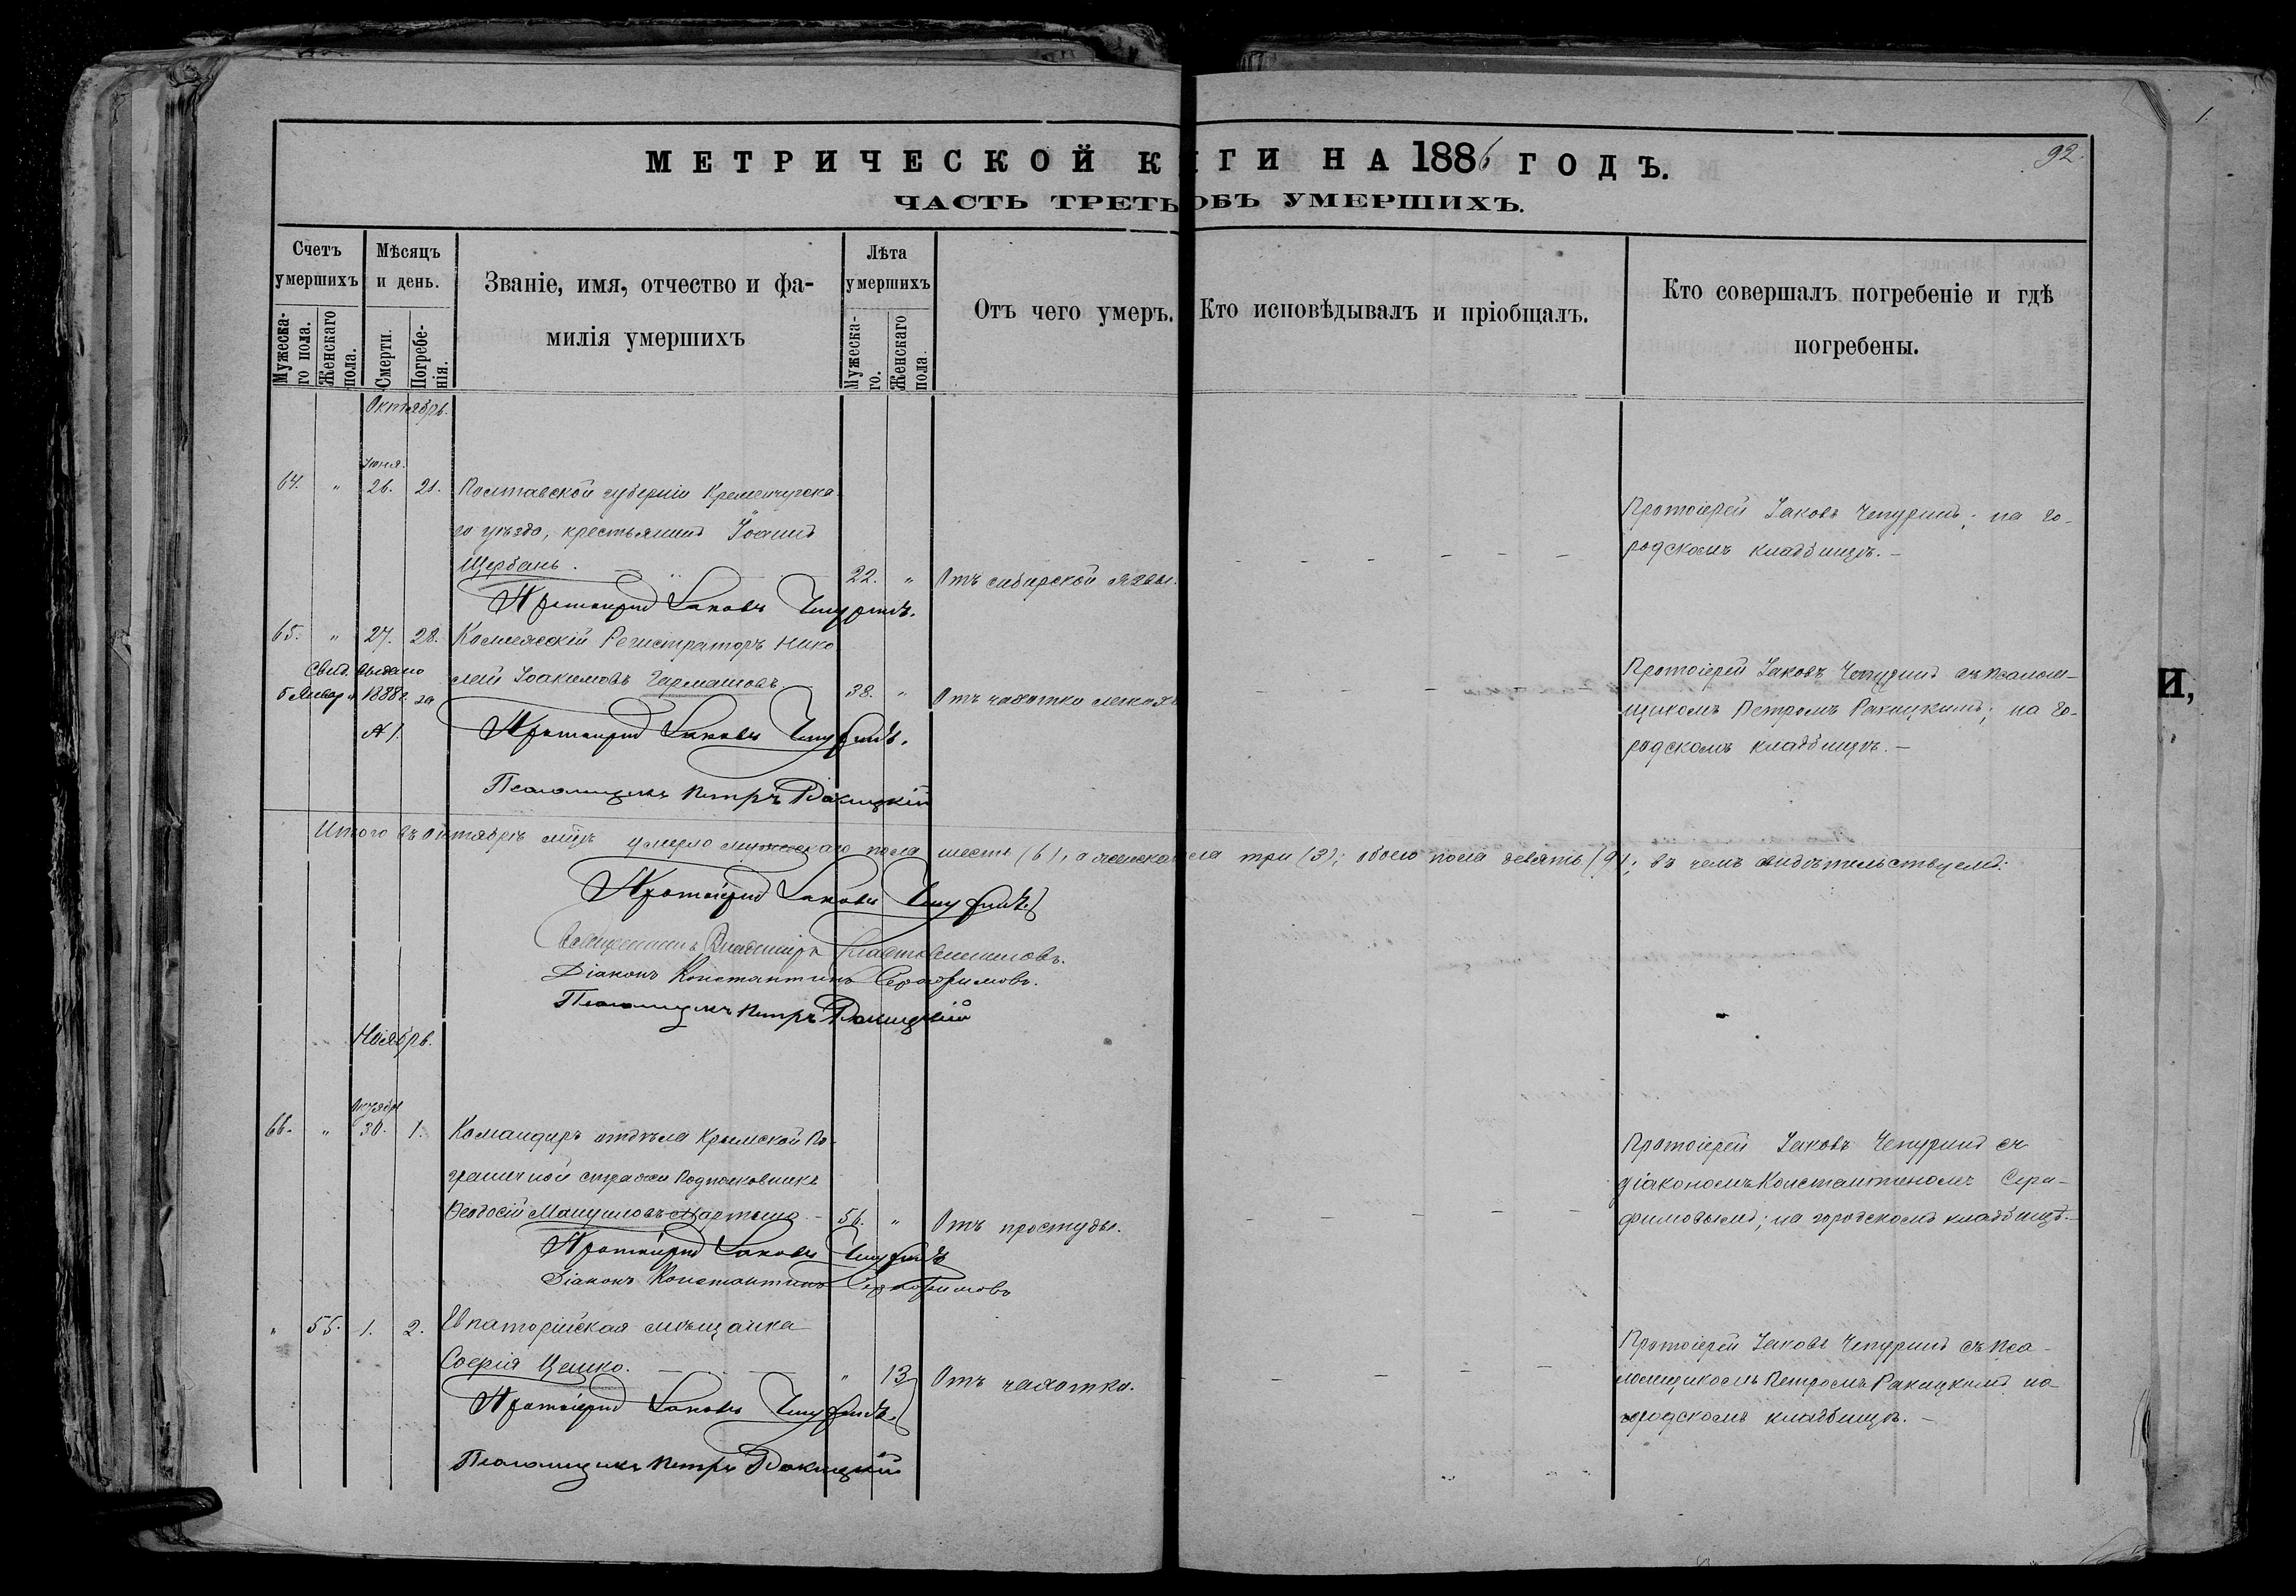 МЕТРИЧЕСКОЙ К ГИ НА 1886 ГОДЪ.
92.
ЧАСТЬ ТРЕТЬ ОБЪ УМЕРШИХЪ.
Счетъ умершихъ
Мужеска-го пола.
Женскаго пола.
Мѣсяцъ и день.
Смерти.
Погребе-нія.
Званіе, имя, отчество и фа-
милія умершихъ
Лѣта умершихъ
Мужеска-го.
Женскаго пола.
Отъ чего умеръ.
Кто исповѣдывалъ и пріобщалъ.
Кто совершалъ погребеніе и гдѣ
погребены.
Октябрь.
64. " 26. 21. Полтавской губерніи Кременчугска
го уѣзда, крестьянинъ Іоаннъ
Щербань. 22. " Отъ сибирской язвы.
Протоіерей Іаковъ Чепуринъ; на го-
родскомъ кладбищѣ.
Протоіерей Іаковъ Чепуринъ.
65. " 27. 28. Коллежскій Регистраторъ Нико
лай Іоакимовъ Гармашовъ. 38. " Отъ чахотки легкихъ
Свид. выдано
5 Января 1888 г. за
№ 1.
Протоіерей Іаковъ Чепуринъ съ псалом-
щикомъ Петромъ Ракицкимъ; на го-
родскомъ кладбищѣ.
Протоіерей Іаковъ Чепуринъ.
Псаломщикъ Петръ Ракицкій
Итого въ октябрѣ м-цѣ умерло мужескаго пола шесть (6), а женска ла три (3); обоего пола девять (9); въ чемъ свидѣтельствуемъ:
Протоіерей Іаковъ Чепуринъ
Священникъ Владиміръ
Діаконъ Константинъ Серафимовъ.
Псаломщикъ Петръ Ракицкій
Ноябрь.
Октября
66. " 30. 1. Командиръ отдѣла Крымской По-
граничной стражи Подполковникъ
Ѳеодосій Мануиловъ Мартино 56. " Отъ простуды.
Протоіерей Іаковъ Чепуринъ съ
діакономъ Константиномъ Сера-
фимовымъ; на городскомъ кладбищѣ.
Протоіерей Іаковъ Чепуринъ
Діаконъ Константинъ Серафимовъ
" 55. 1. 2. Евпаторійская мѣщанка
Софія Цешко. " 13 Отъ чахотки.
Протоіерей Іаковъ Чепуринъ съ пса-
ломщикомъ Петромъ Ракицкимъ на
городскомъ кладбищѣ.
Протоіерей Іаковъ Чепуринъ.
Псаломщикъ Петръ Ракицкій
И,